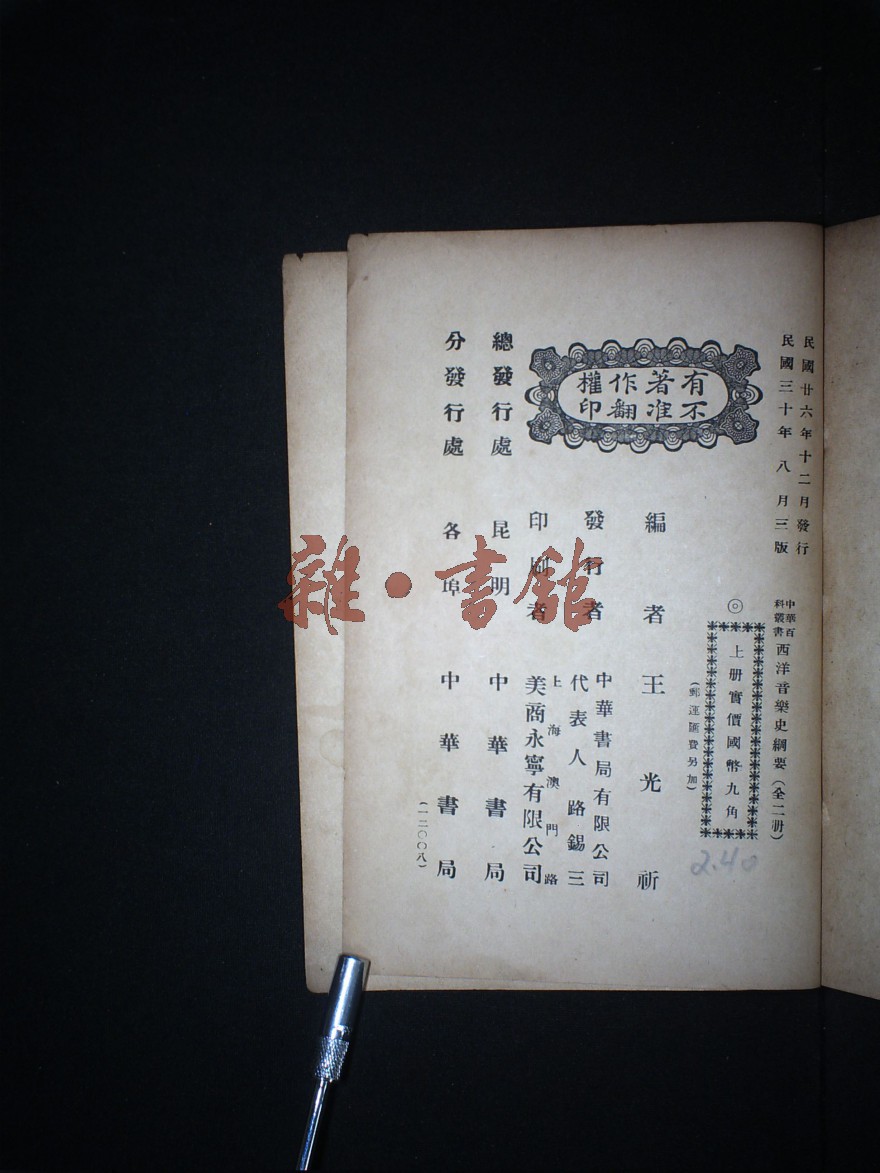 民國廿六年十二月發行
民國三十年八月三版
中華百科叢書
西洋音樂史綱要（全二册）
◎
上册實價國幣九角
（郵運匯費另加）
2.40
有著作權
不准翻印
編者 王光祈
發行者 中華書局有限公司
代表人 路錫三
印刷者 上海澳門路
美商永寧有限公司
總發行處 昆明 中華書局
分發行處 各埠 中華書局
（一二〇〇八）
雜·書館